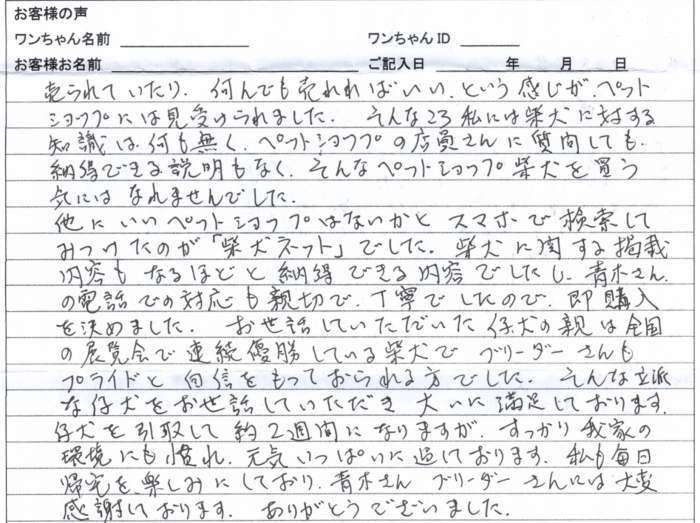 お客様の声
ワンちゃん名前 ワンちゃんID
お客様お名前 ご記入日 年 月 日
売られていたり、何んでも売れればいい、という感じが、ペット
ショップには見受けられました。そんな中、私には柴犬に対する
知識は何も無く、ペットショップの店員さんに質問しても、
納得できる説明もなく、そんなペットショップ柴犬を買う
気にはなれませんでした。
他にいいペットショップはないかとスマホで検索して
みつけたのが「柴犬ネット」でした。柴犬に関する掲載
内容もなるほどと納得できる内容でしたし、青木さん
の電話での対応も親切で、丁寧でしたので、即購入
を決めました。お世話していただいた仔犬の親は全国
の展覧会で連続優勝している柴犬でブリーダーさんも
プライドと自信をもっておられる方でした。そんな立派
な仔犬をお世話していただき大いに満足しております。
仔犬を引取して約2週間になりますが、すっかり我家の
環境にも慣れ、元気いっぱいに過しております。私も毎日
帰宅を楽しみにしており、青木さん ブリーダーさんには大変
感謝しております。ありがとうございました。